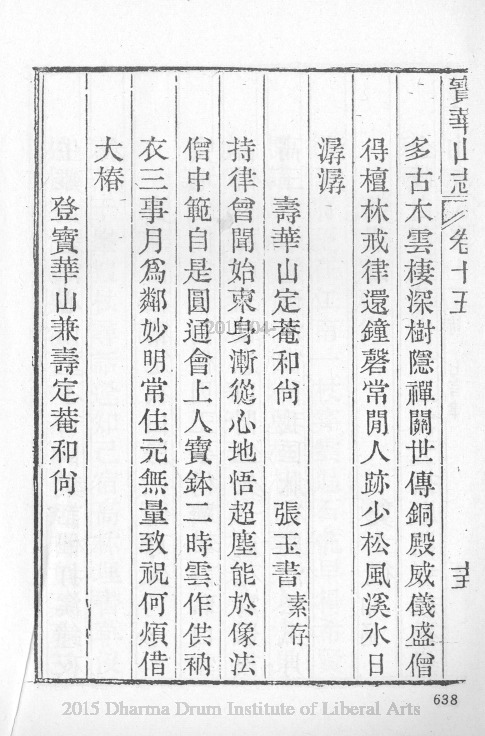 寶華山志 卷十五
多古木雲棲深樹隱禪關世傳銅殿威儀盛僧
得檀林戒律還鐘磬常閒人跡少松風溪水日
潺潺
壽華山定菴和尙 張玉書 素存
持律曾聞始東身漸從心地悟超塵能於像法
僧中範自是圓通會上人寶鉢二時雲作供衲
衣三事月爲鄰妙明常住元無量致祝何煩借
大椿
登寶華山兼壽定菴和尙
638
2015 Dharma Drum Institute of Liberal Arts